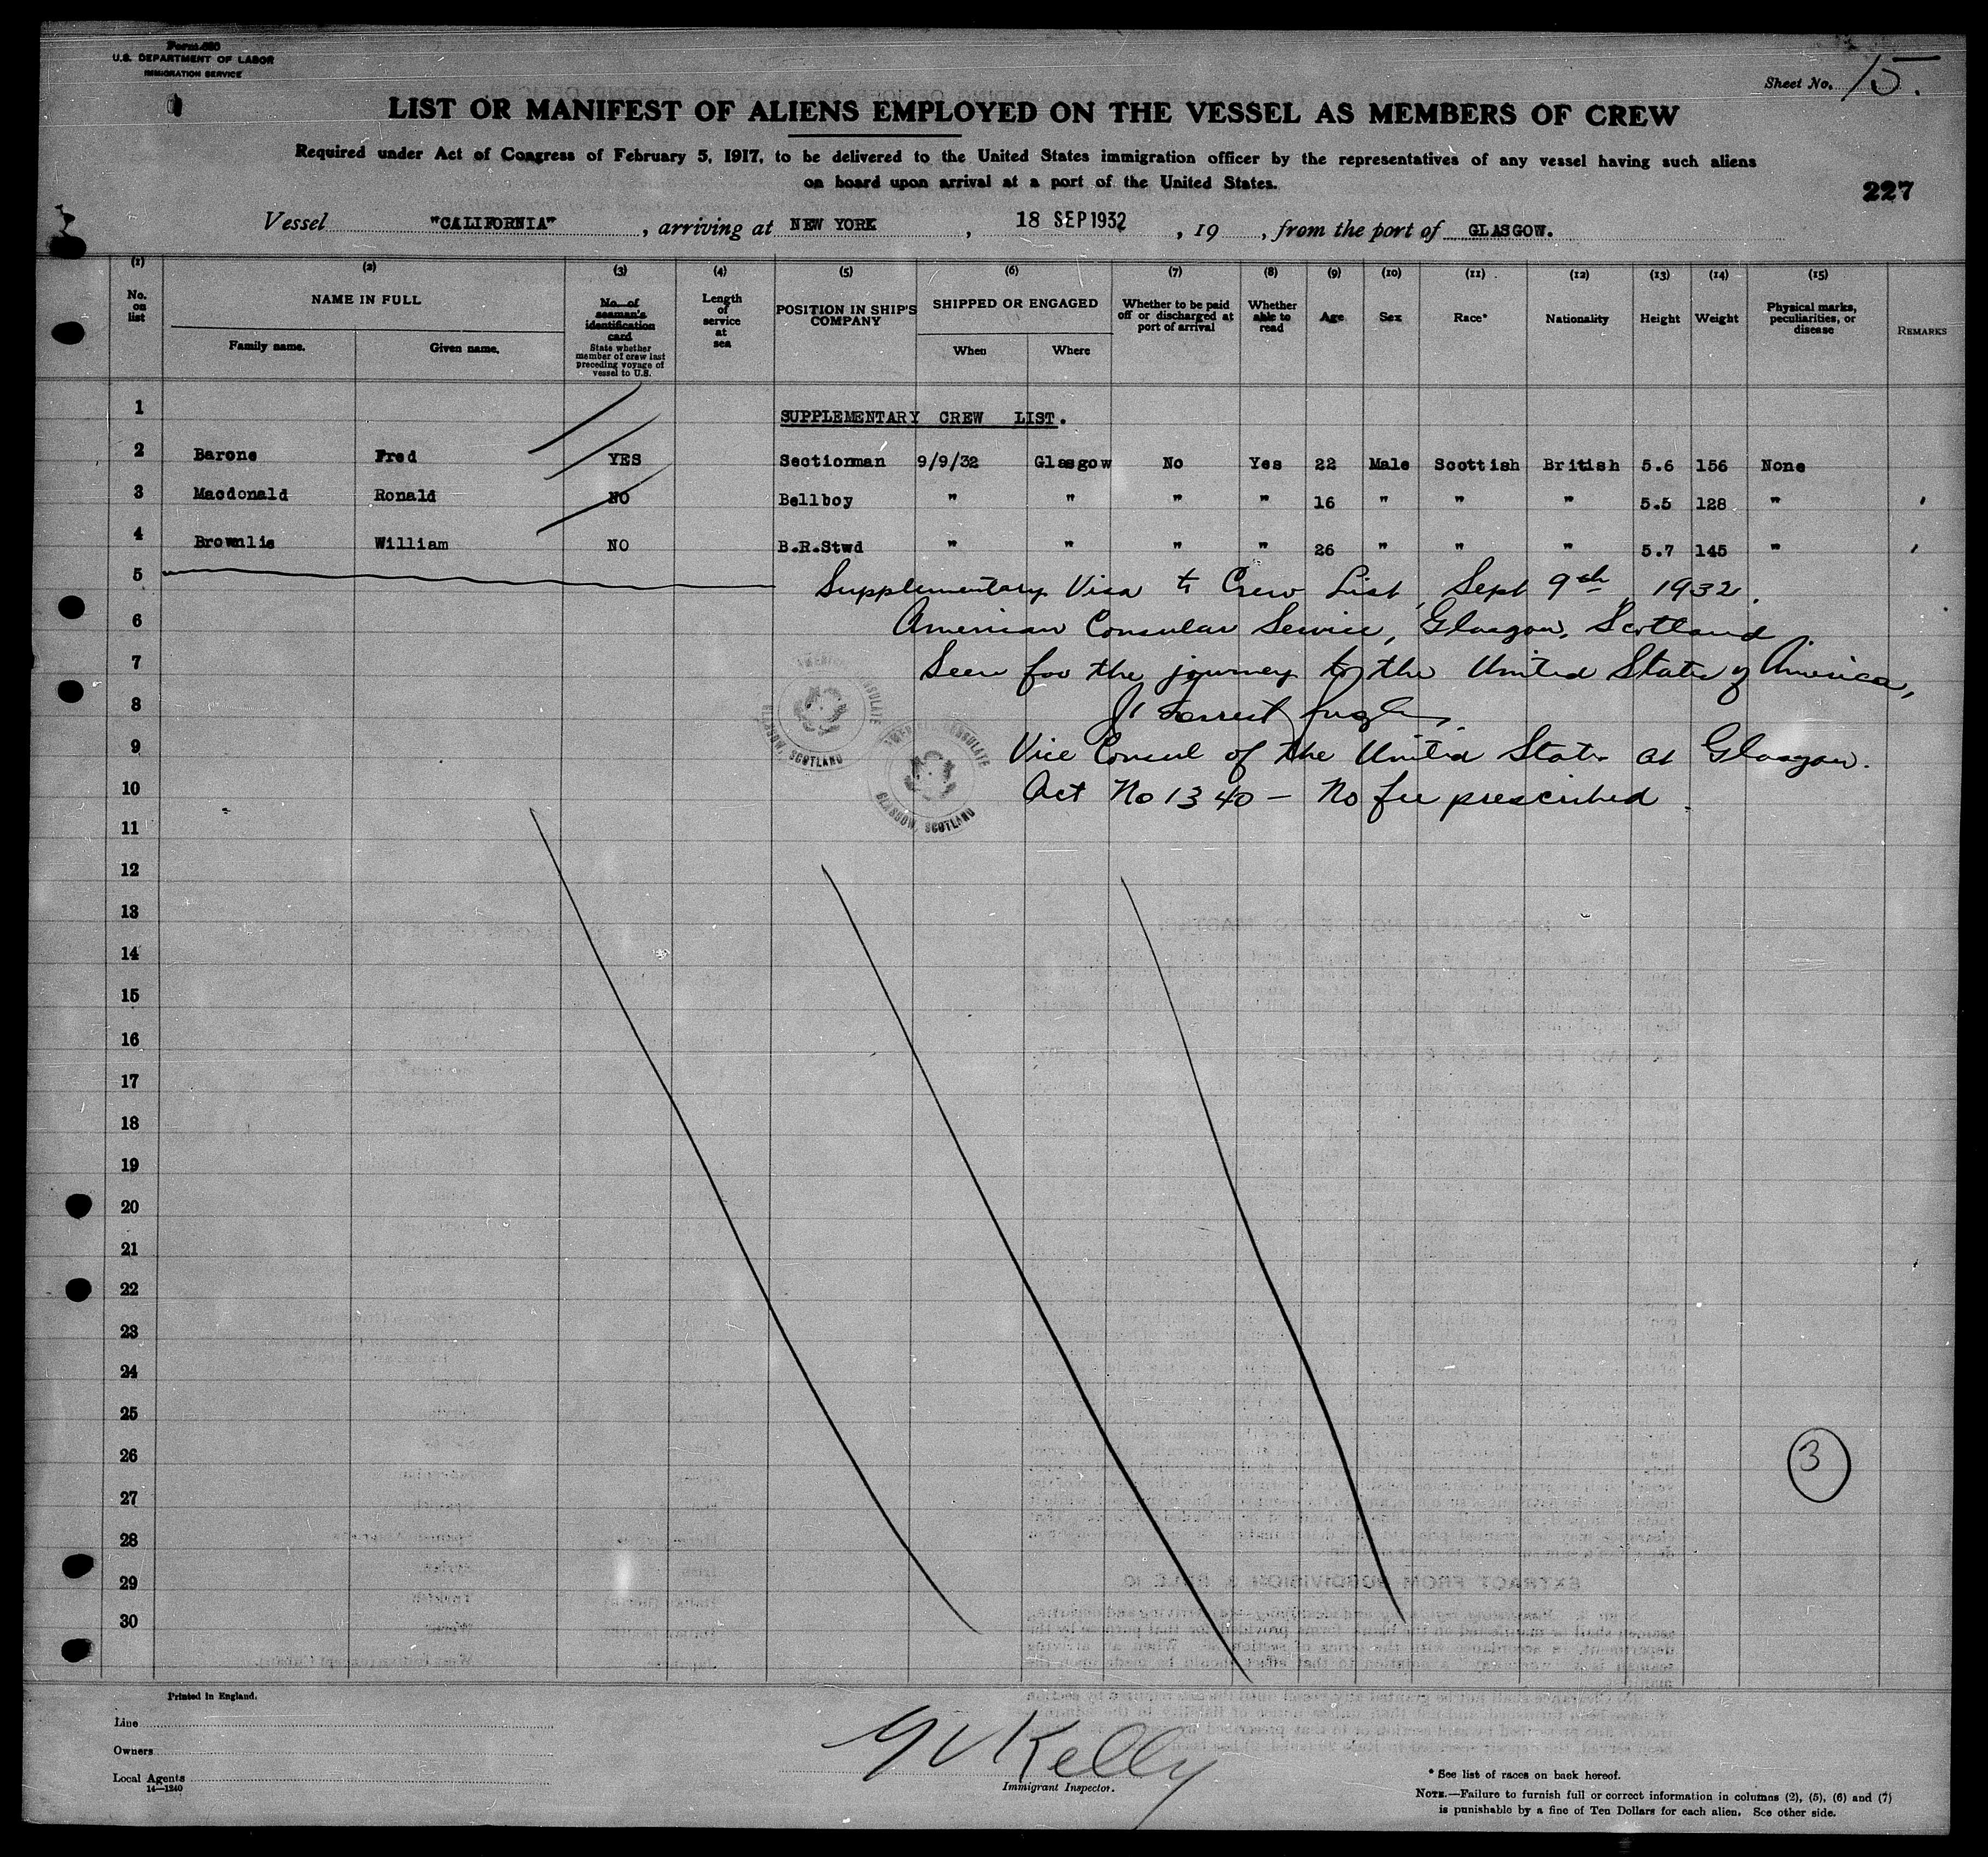 Form 680
U.S. DEPARTMENT OF LABOR
IMMIGRATION SERVICE
Sheet No. 15.
LIST OR MANIFEST OF ALIENS EMPLOYED ON THE VESSEL AS MEMBERS OF CREW
Required under Act of Congress of February 5, 1917, to be delivered to the United States immigration officer by the representatives of any vessel having such aliens
on board upon arrival at a port of the United States.
227
Vessel "CALIFORNIA", arriving at NEW YORK, 18 SEP 1932, 19, from the port of GLASGOW.
(1) (2) (3) (4) (5) (6) (7) (8) (9) (10) (11) (12) (13) (14) (15)
No. on list
NAME IN FULL
Family name. Given name.
No. of seaman's identification card
State whether member of crew last preceding voyage of vessel to U.S.
Length of service at sea
POSITION IN SHIP'S COMPANY
SHIPPED OR ENGAGED
When Where
Whether to be paid off or discharged at port of arrival
Whether able to read
Age
Sex
Race*
Nationality
Height
Weight
Physical marks, peculiarities, or disease
REMARKS
1 SUPPLEMENTARY CREW LIST.
2 Barone Fred YES Sectionman 9/9/32 Glasgow No Yes 22 Male Scottish British 5.6 156 None
3 Macdonald Ronald NO Bellboy " " " " 16 " " " 5.5 128 "
4 Brownlie William NO B.R.Stwd " " " " 26 " " " 5.7 145 "
5 Supplementary Visa to Crew List, Sept 9th, 1932.
6 American Consular Service, Glasgow, Scotland.
7 Seen for the journey to the United States of America,
8
9 Vice Consul of the United States at Glasgow.
10 Act No 1340 - No fee prescribed.
AMERICAN CONSULATE
GLASGOW, SCOTLAND
AMERICAN CONSULATE
GLASGOW, SCOTLAND
11
12
13
14
15
16
17
18
19
20
21
22
23
24
25
26
27
28
29
30
3
Printed in England.
Line
Owners
Local Agents
14—1240
Kelly
Immigrant Inspector.
* See list of races on back hereof.
NOTE.—Failure to furnish full or correct information in columns (2), (5), (6) and (7)
is punishable by a fine of Ten Dollars for each alien. See other side.